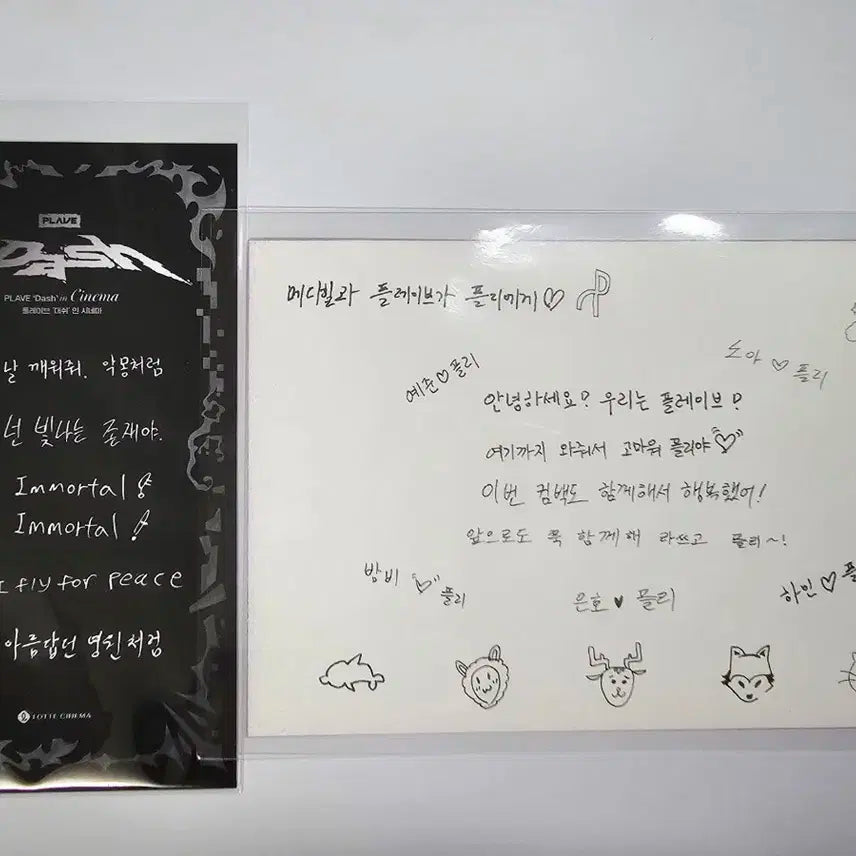 PLAVE
Dash
PLAVE 'Dash' in Cinema
플레이브 '대쉬' 인 시네마
날 깨워줘. 악몽처럼
넌 빛나는 존재야.
Immortal!
Immortal!
I fly for peace
아름답던 영원처럼
LOTTE CINEMA
메디빌라 플레이브가 플리에게♡
예준♡플리
노아♡플리
안녕하세요? 우리는 플레이브?
여기까지 와줘서 고마워 플리야♡
이번 컴백도 함께해서 행복했어!
앞으로도 쭉 함께해 라쓰고 플리~!
밤비♡플리
은호♥플리
하민♡플